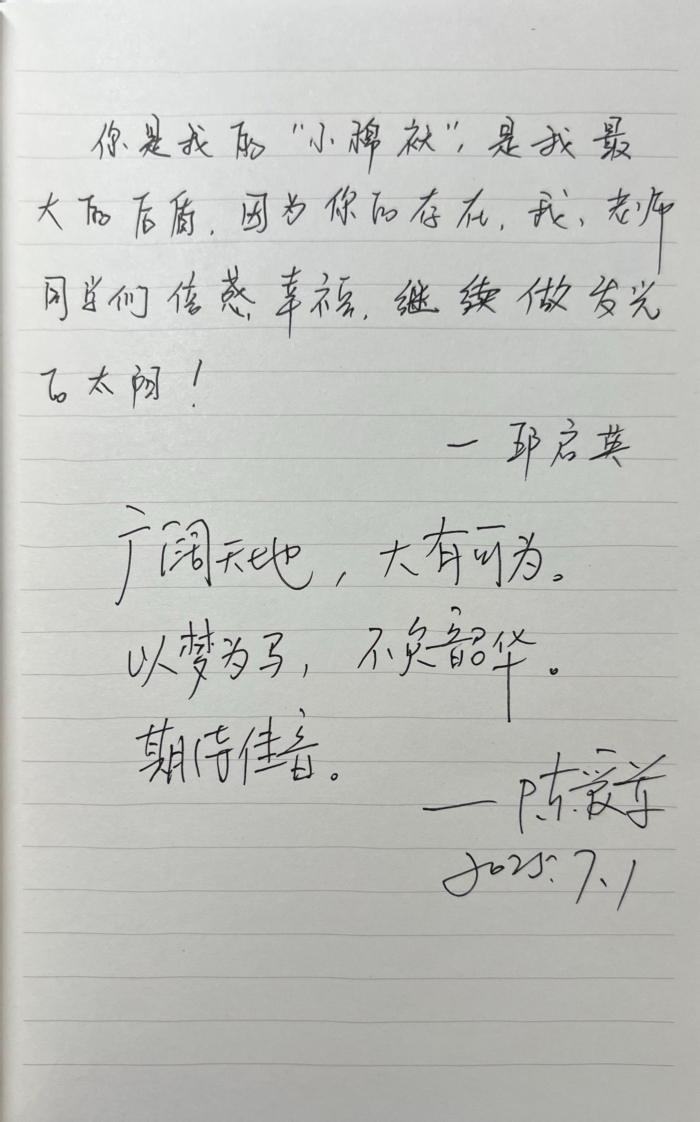 你是我的“小棉袄”，是我最
大的后盾，因为你的存在，我、老师
同学们倍感幸福，继续做发光
的太阳！
一邱启英
广阔天地，大有可为。
以梦为马，不负韶华。
期待佳音。
——陈爱萍
2025.7.1